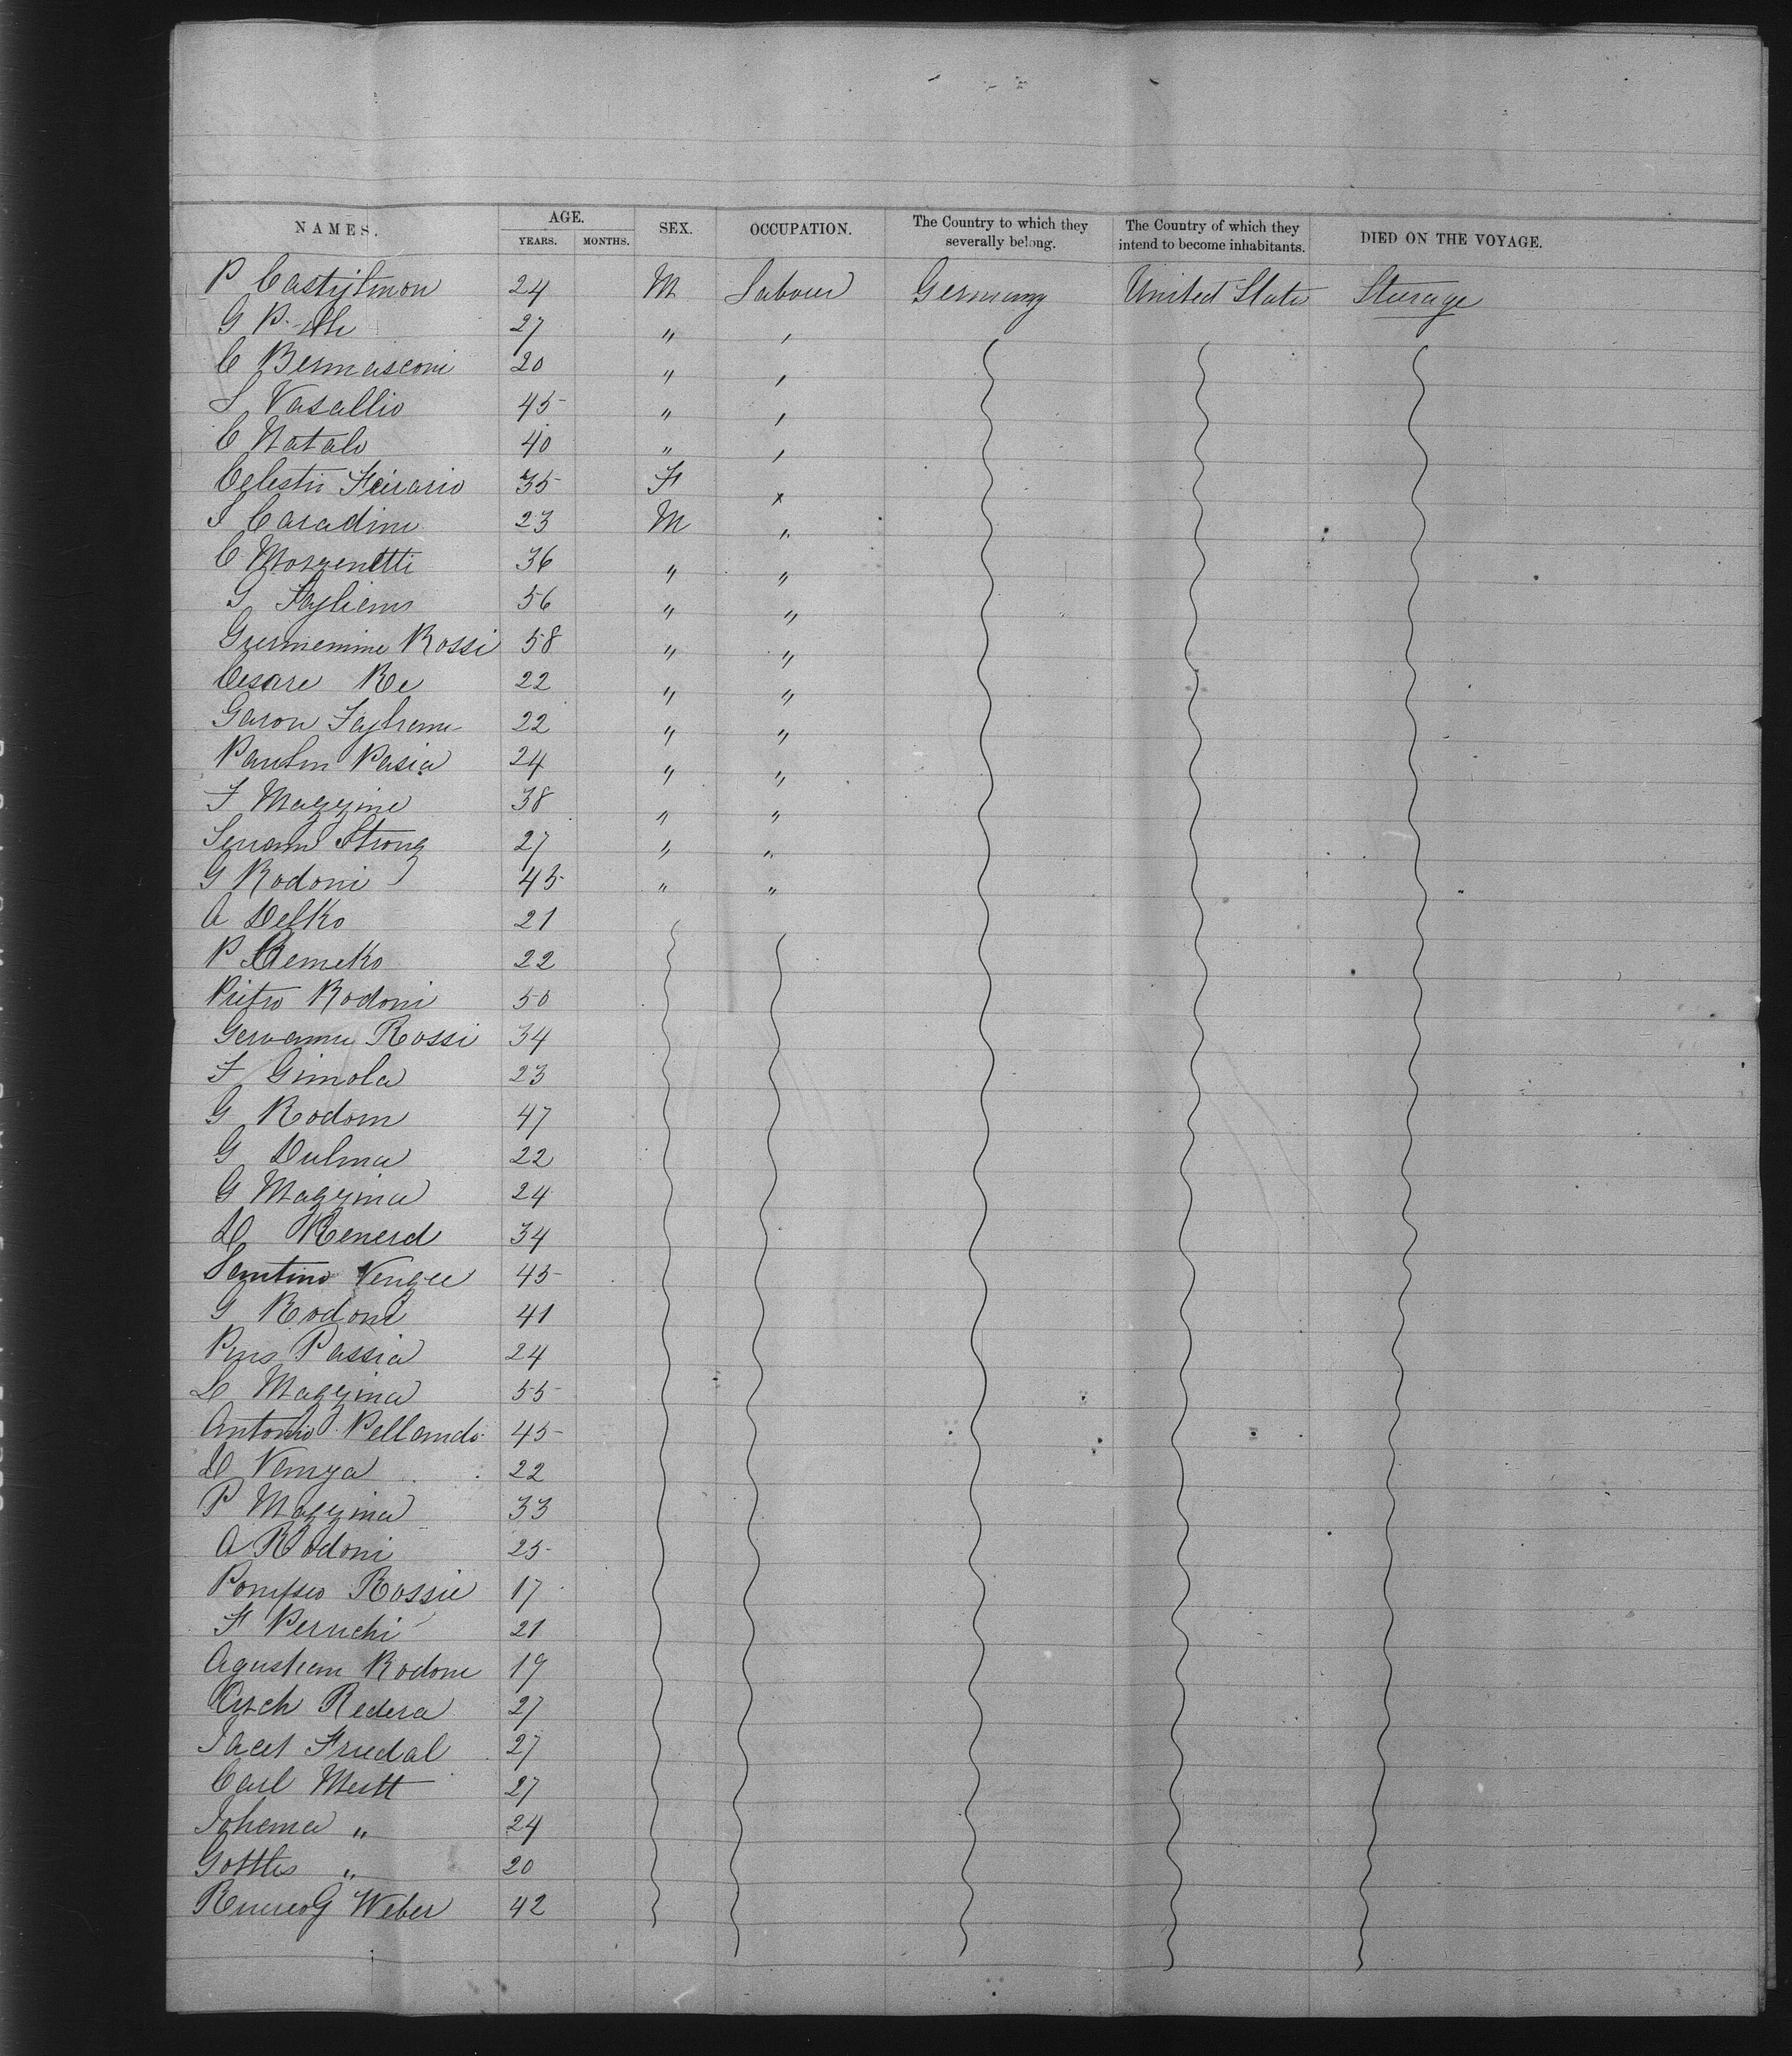 NAMES. AGE. SEX. OCCUPATION. The Country to which they severally belong. The Country of which they intend to become inhabitants. DIED ON THE VOYAGE.
YEARS. MONTHS.
P Castijlmon 24 M Labour Germany United State Sturage
G P. 27 " "
C Bernasconi 20 " "
S Vasallio 45 " "
C Natalo 40 " "
Celestii Feirario 35 F x
S Caradini 23 M "
C Morzenetti 36 " "
S Taglieno 56 " "
Guermemine Rossi 58 " "
Cesare Re 22 " "
Garon 22 " "
Paulin Pasia 24 " "
F Mazzine 38 " "
Strong 27 " "
G Rodoni 45 " "
A Delko 21
P Remeko 22
Pietro Rodoni 50
Gervanni Rossi 34
F Gimola 23
G Rodom 47
G Dulma 22
G Mazzina 24
D Renerd 34
Santino Vengee 45
G Rodoni 41
Pius Passia 24
L Mazzina 55
Antonio Pellando 45
D Venzya 22
P Mazzina 33
A Rodoni 25
Pompeo Rossie 17
F Peruchi 21
Agustien Rodone 19
Redera 27
Jacet Friedal 27
Carl Mertt 27
Johema " 24
Gottles " 20
Weber 42